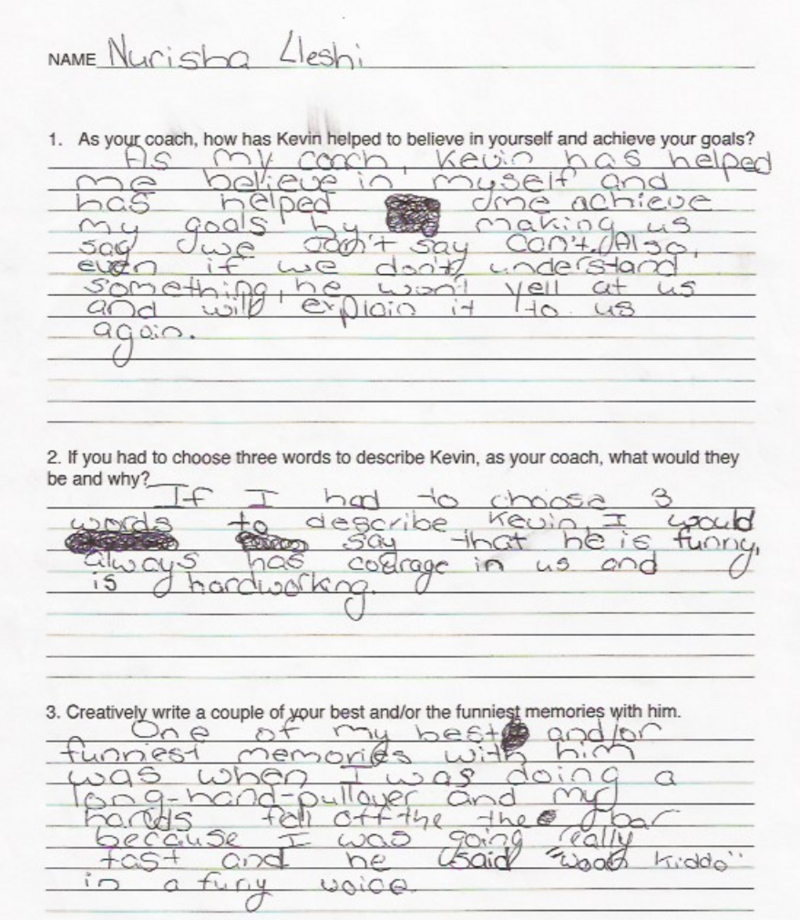 NAME Nurisha Lleshi
1. As your coach, how has Kevin helped to believe in yourself and achieve your goals?
As my coach, Kevin has helped
me believe in myself and
has helped me achieve
my goals by making us
say we don't say can't. Also,
even if we don't understand
something, he won't yell at us
and will explain it to us
again.
2. If you had to choose three words to describe Kevin, as your coach, what would they
be and why?
If I had to choose 3
words to describe Kevin, I would
say that he is funny,
always has courage in us and
is hardworking.
3. Creatively write a couple of your best and/or the funniest memories with him.
One of my best and/or
funniest memories with him
was when I was doing a
long-hand-pullover and my
hands fell off the the bar
because I was going really
fast and he said "woah kiddo"
in a funy voice.